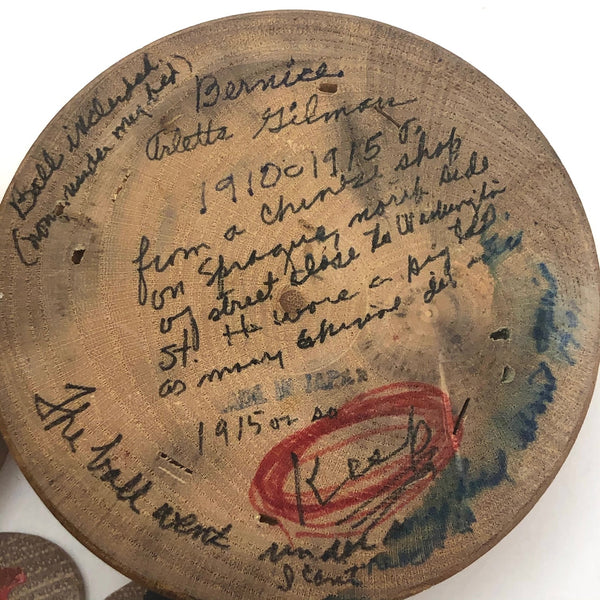 Ball included
(mom. under my bed)
Bernice
Arletta Gilman
1910-1915 or
from a Chinese shop
on Sprague, north side
of street close to Washington
St. He wore a pig tail
as many Chinese did
MADE IN JAPAN
1915 or so
Keep!
The ball went under my bed
I can't